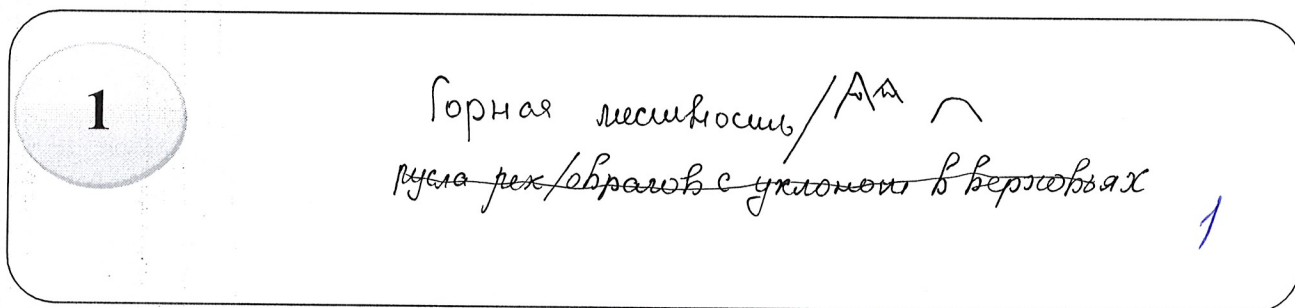 1
Горная местность/
русла рек/оврагов с уклоном в верховьях
1